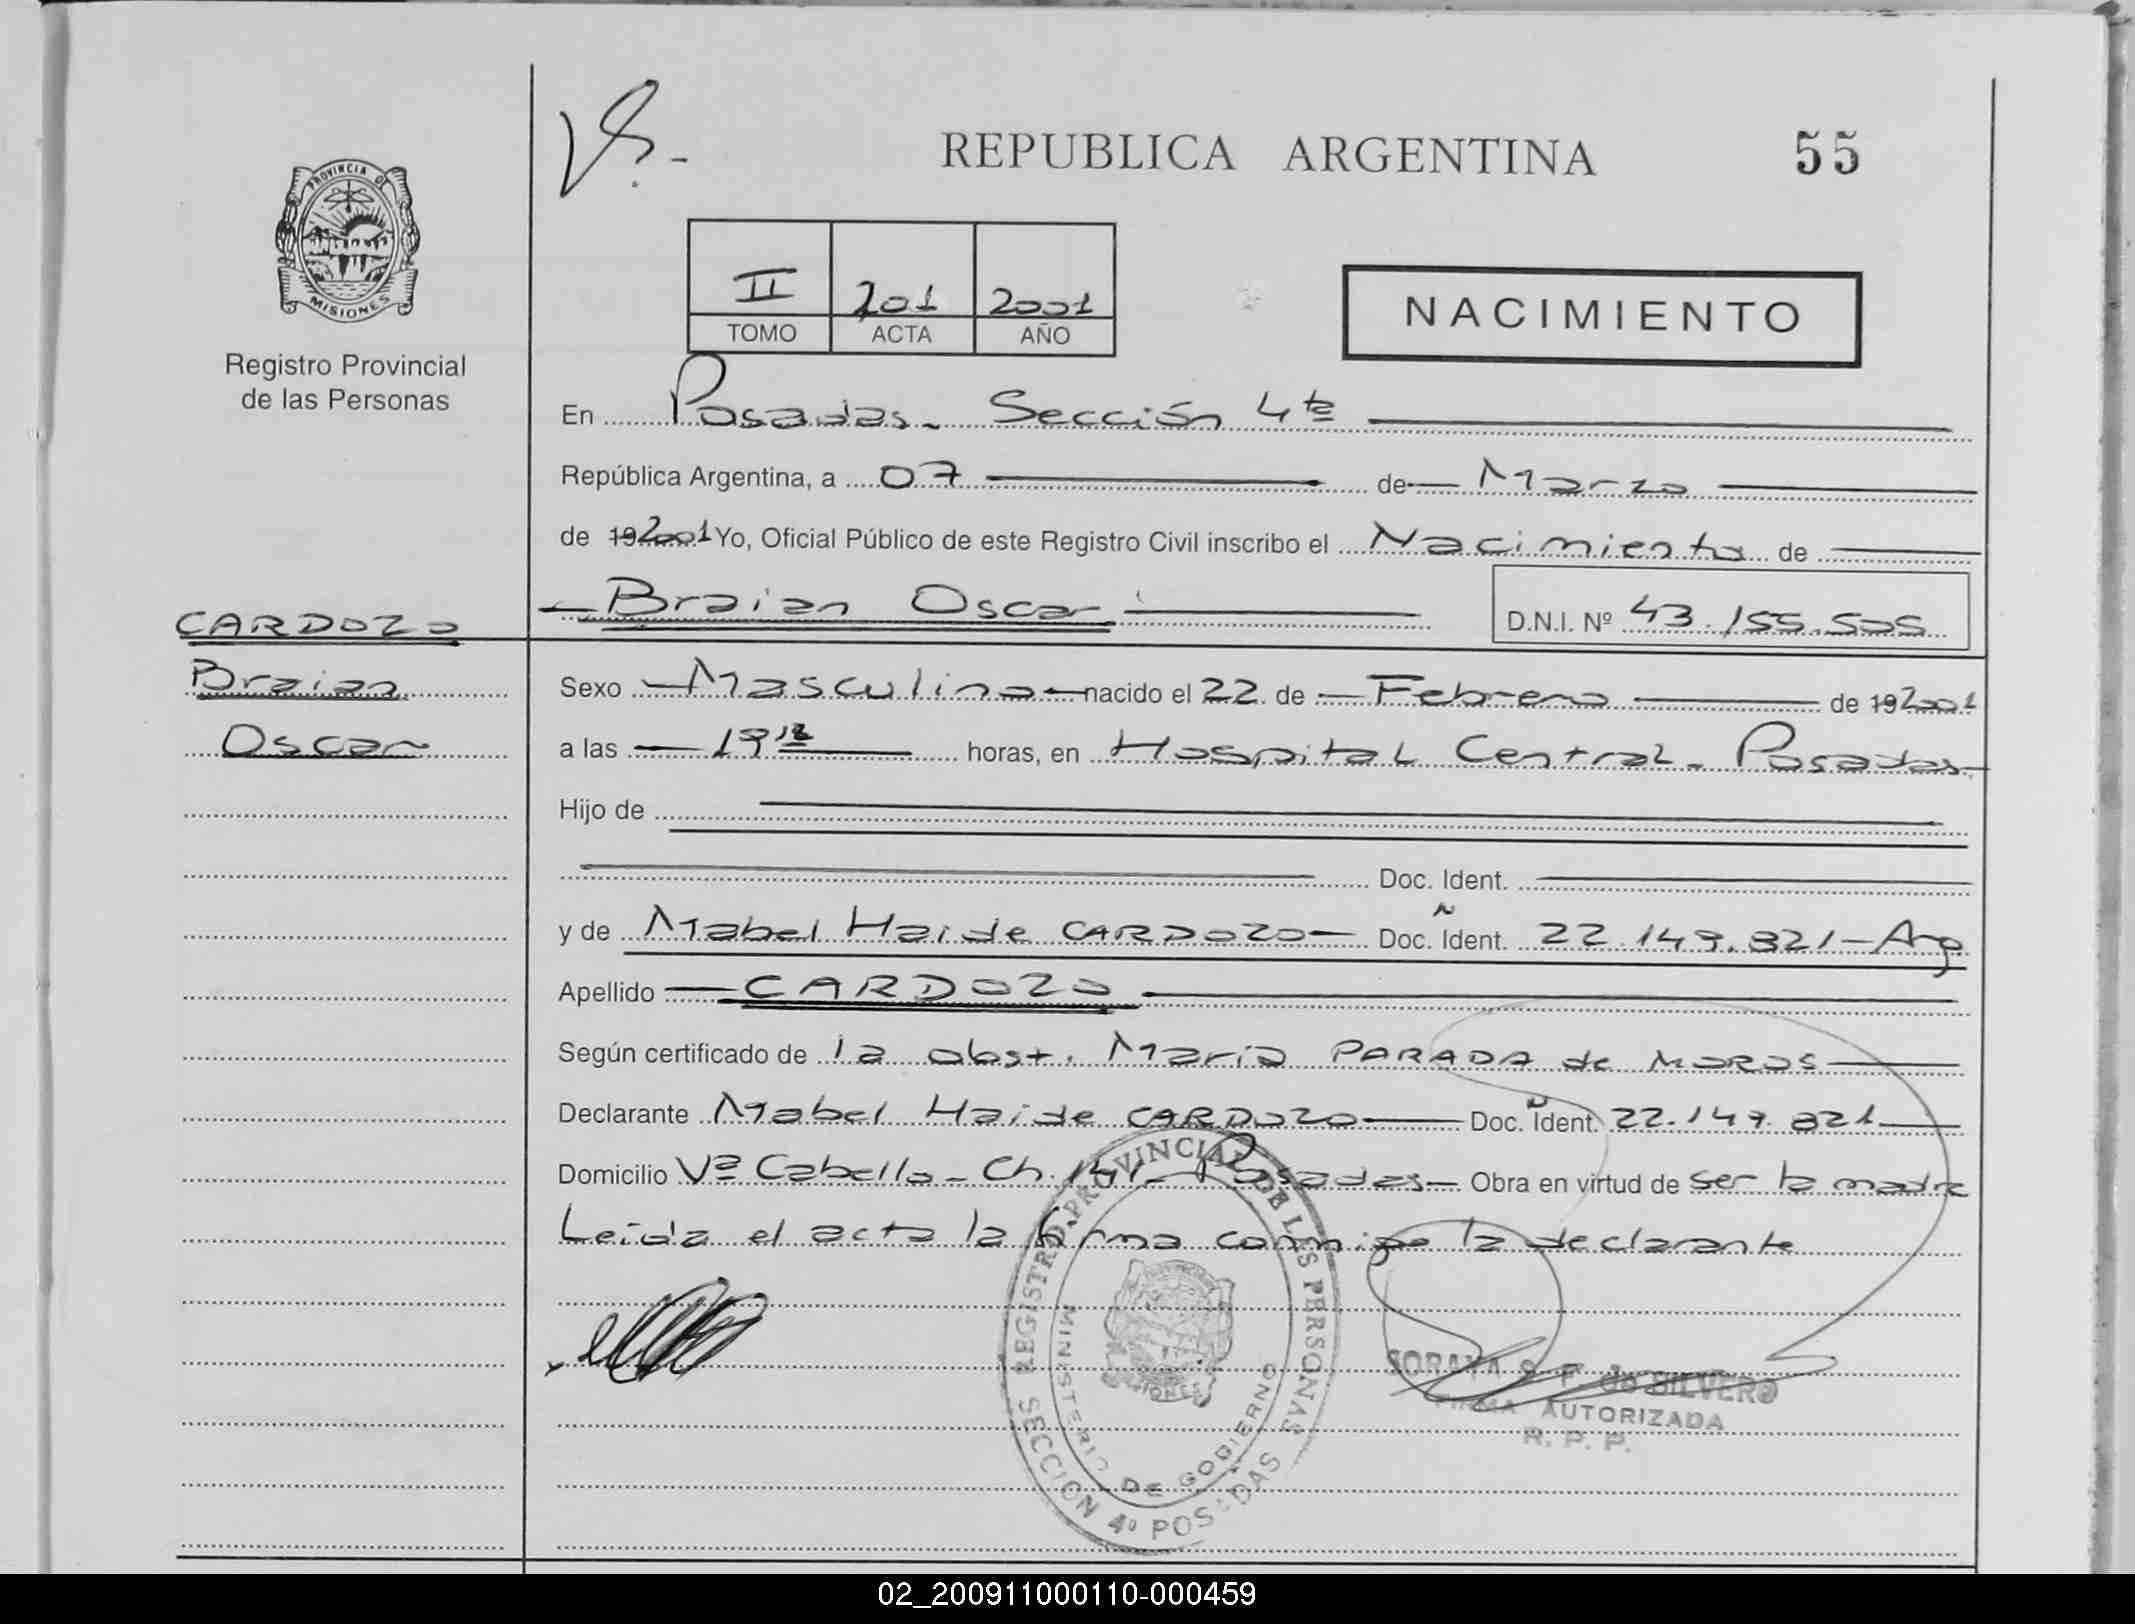 REPUBLICA ARGENTINA 55
PROVINCIA DE MISIONES
Registro Provincial
de las Personas
II 201 2001
TOMO ACTA AÑO
NACIMIENTO
En Posadas - Sección 4ta
República Argentina, a 07 de Marzo
de 192001 Yo, Oficial Público de este Registro Civil inscribo el Nacimiento de
Braian Oscar D.N.I. Nº 43.155.505
CARDOZO
Braian
Oscar
Sexo Masculino nacido el 22 de Febrero de 192001
a las 19 horas, en Hospital Central - Posadas
Hijo de
Doc. Ident.
y de Mabel Haide CARDOZO Doc. Ident. 22.149.821 - Arg
Apellido CARDOZO
Según certificado de la obst. Maria PARADA de MOROS
Declarante Mabel Haide CARDOZO Doc. Ident. 22.149.821
Domicilio Vª Cabello - Ch. 141 - Posadas - Obra en virtud de ser la madre
Leida el acta la firma conmigo la declarante
REGISTRO PROVINCIAL DE LAS PERSONAS
MINISTERIO DE GOBIERNO
SECCION 4º POSADAS
SORAYA S. F. de SILVERO
FIRMA AUTORIZADA
R. P. P.
02_200911000110-000459